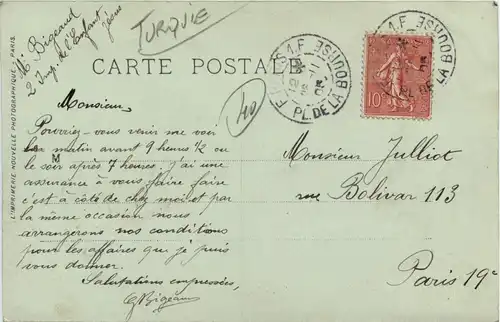 Mr Bigeard
2 Imp. de l'Enfant
Jésus
TURQUIE
CARTE POSTALE
PL. DE LA BOURSE
PL. DE LA BOURSE
10
40
L'IMPRIMERIE NOUVELLE PHOTOGRAPHIQUE - PARIS.
Monsieur
Pouvriez-vous venir me voir
un matin avant 9 heures 1/2 ou
le soir après 7 heures. j'ai une
M
assurance à vous faire faire
c'est à côté de chez moi et par
la même occasion nous
arrangerons nos conditions
pour les affaires que je puis
vous donner.
Salutations empressées,
Monsieur Julliot
rue Bolivar 113
Paris 19e